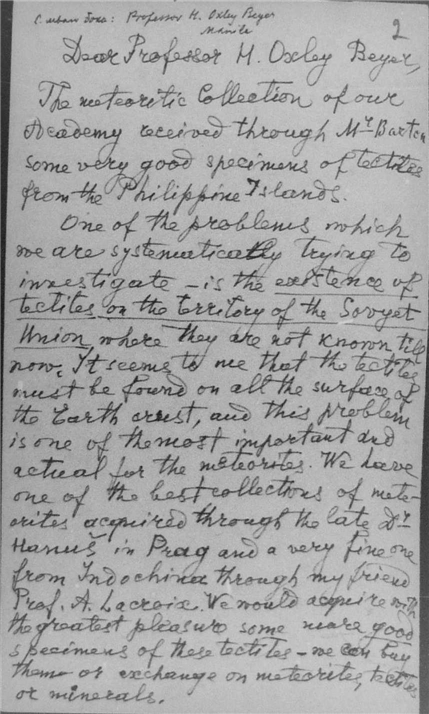 Professor H. Oxley Beyer
Manila
2
Dear Professor H. Oxley Beyer,
The meteoritic Collection of our
Academy received through Mr Barton
some very good specimens of tectites
from the Philippine Islands.
One of the problems which
we are systematically trying to
investigate – is the existence of
tectites on the territory of the Sovyet
Union, where they are not known till
now. It seems to me that the tectites
must be found on all the surface of
the Earth crust, and this problem
is one of the most important and
actual for the meteorites. We have
one of the best collections of mete-
orites acquired through the late Dr
Hanuš in Prag and a very fine one
from Indochina through my friend
Prof. A. Lacroix. We would acquire with
the greatest pleasure some more good
specimens of these tectites – we can buy
them or exchange on meteorites, tectites
or minerals.